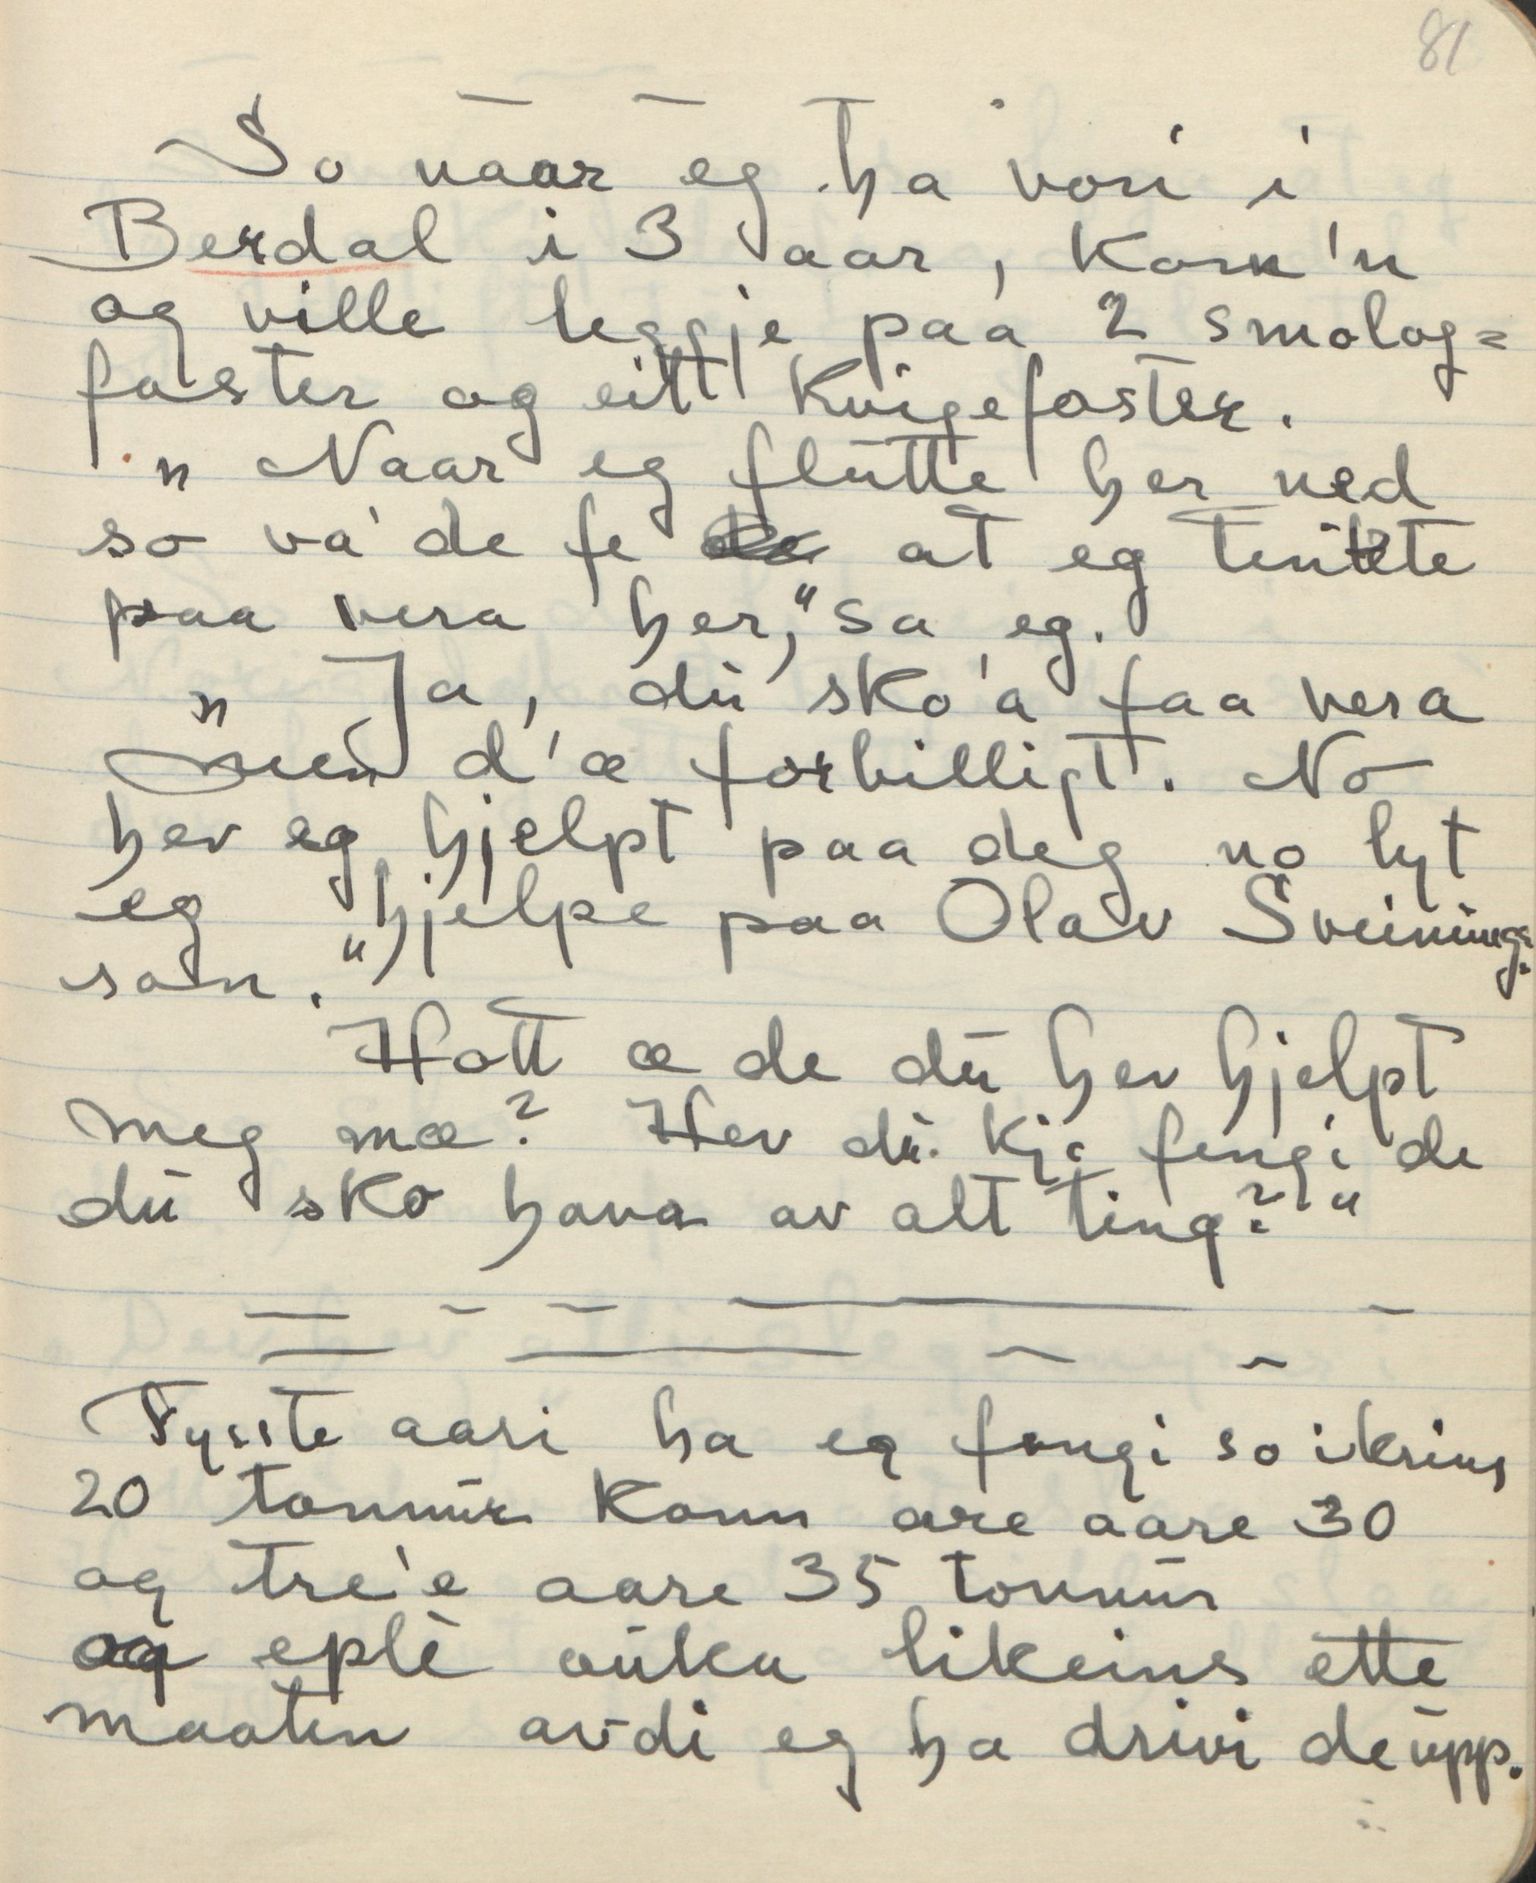 81
So naar eg ha vori i
Berdal i 3 aar, kom'n
og ville leggje paa 2 smolog=
foster og eitt Kvigefoster.
„ Naar eg flutte her ned
so va' de fe at eg tenkte
paa vera her," sa eg.
„ Ja, du sko'a faa vera
men d'æ forbilligt. No
hev eg hjelpt paa deg no lyt
eg hjelpe paa Olav Sveinungs=
son."
Hott æ de du hev hjelpt
meg mæ? Hev du kje fengi de
du sko hava av alt ting?"
Fysste aari ha eg fengi so ikring
20 tonnur Konn are aare 30
og tre'e aare 35 tonnur
og eple auka likeins ette
maaten avdi eg ha drivi de upp.